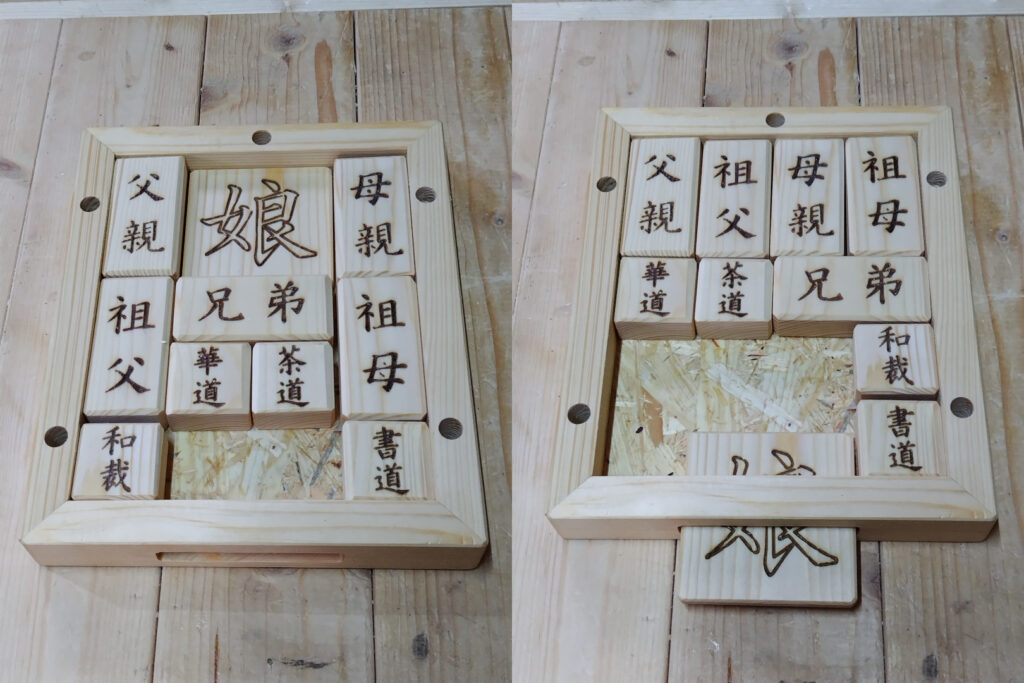 父親
娘
母親
祖父
兄弟
祖母
華道
茶道
和裁
書道
父親
祖父
母親
祖母
華道
茶道
兄弟
和裁
書道
娘